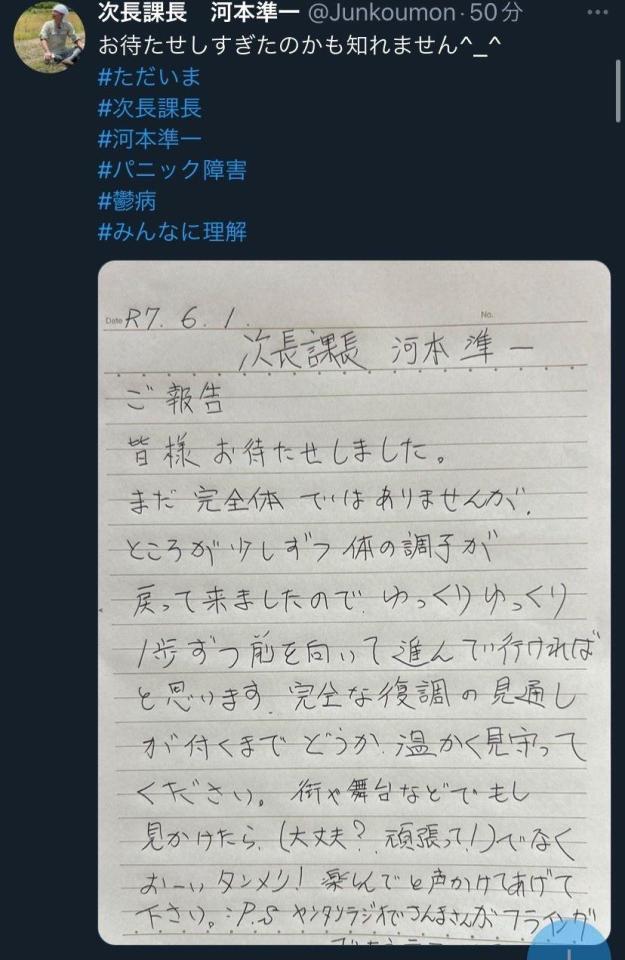 次長課長　河本準一 @Junkoumon · 50分
お待たせしすぎたのかも知れません^_^
#ただいま
#次長課長
#河本準一
#パニック障害
#鬱病
#みんなに理解
Date R7. 6. 1. No.
次長課長 河本準一
ご報告
皆様 お待たせしました。
まだ 完全体 ではありませんが、
ところが少しずつ 体の調子が
戻って来ましたので、ゆっくりゆっくり
1歩ずつ前を向いて進んで行ければ
と思います。完全な復調の見通し
が付くまで どうか、温かく見守って
ください。 街や舞台などでもし
見かけたら、(大丈夫? 頑張って!)でなく
おーい タンメリ! 楽しんでと声かけてあげて
下さい。:P.S ヤンタンラジオでさんまさんがフライングが